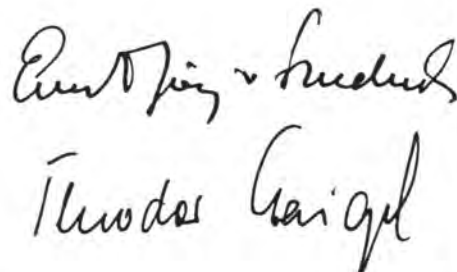 Ernst Jörg v Studnitz
Theodor Waigel